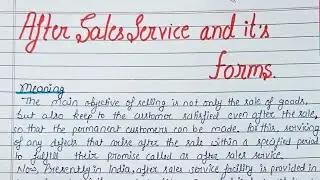 After Sales Service and it's
forms.
Meaning
The main objective of selling is not only the sale of goods,
but also keep to the customer satisfied even after the sale,
so that the permanent customers can be made. For this, servicing
of any defects that arise after the sale within a specified period
to fulfill their promise called as after sales service.
Now, Presently in India, after sales service facility is provided in